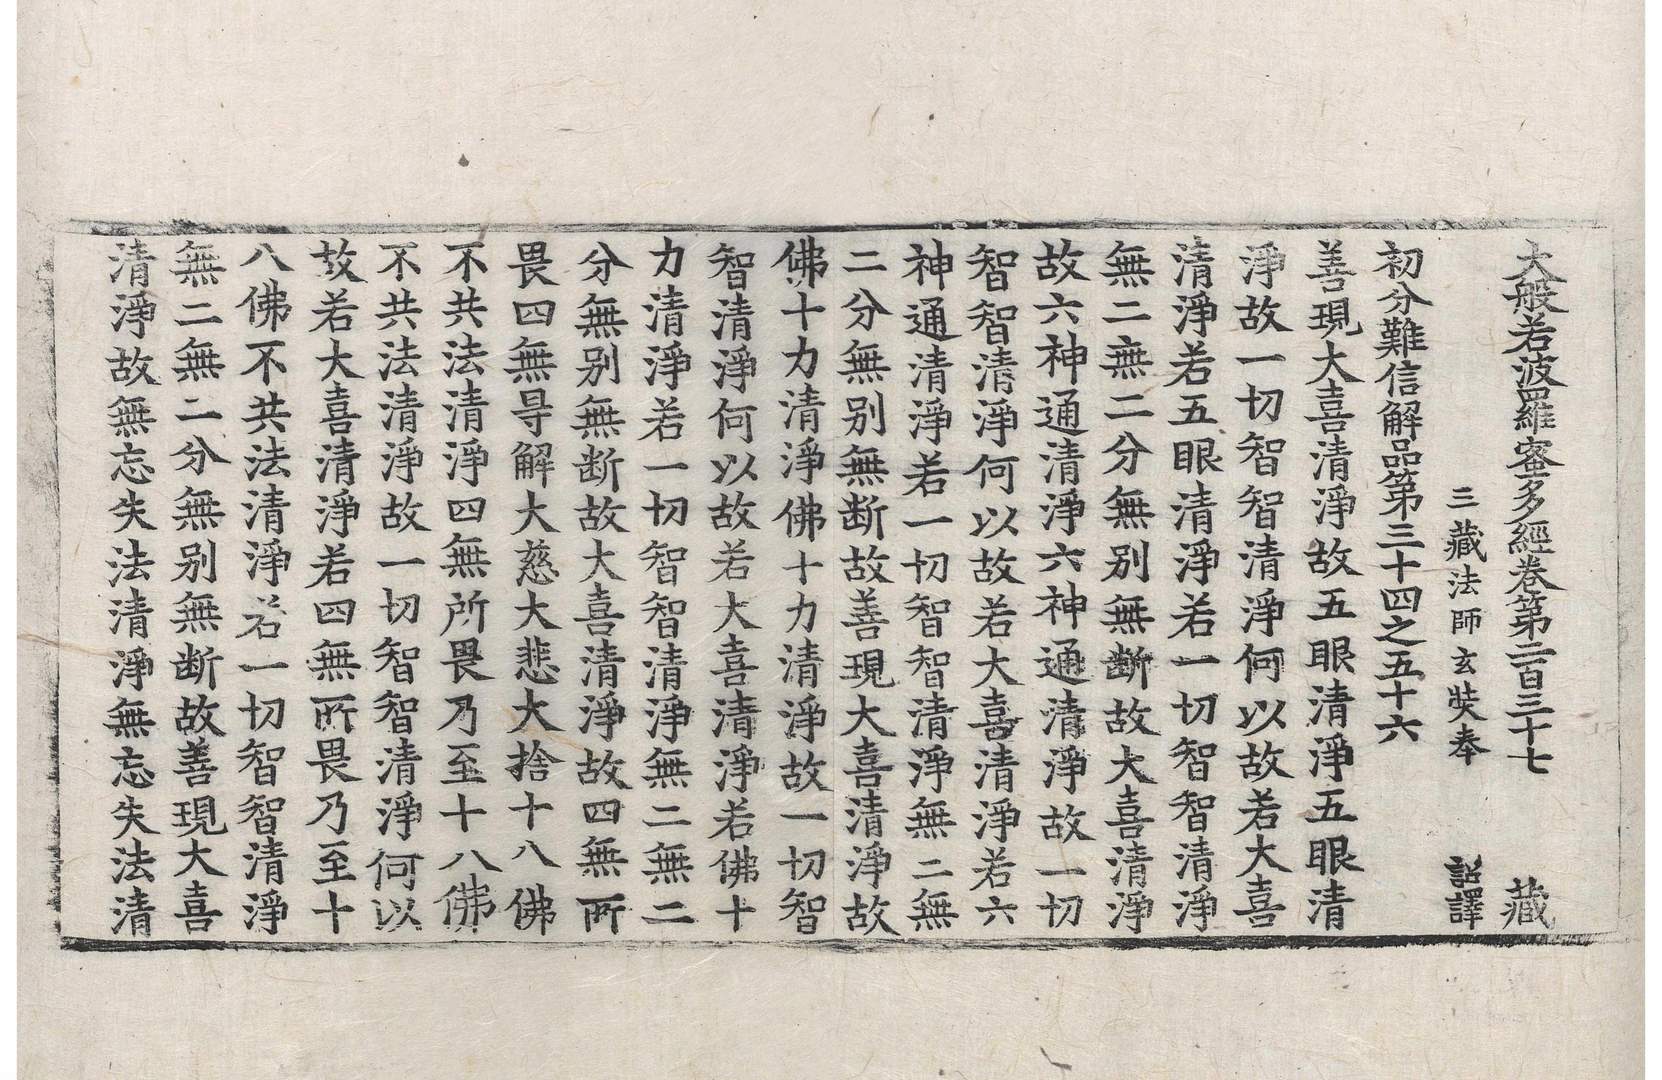 大般若波羅蜜多經卷第二百三十七 藏
三藏法師玄奘奉 詔譯
初分難信解品第三十四之五十六
善現大喜清淨故五眼清淨五眼清
淨故一切智智清淨何以故若大喜
清淨若五眼清淨若一切智智清淨
無二無二分無別無斷故大喜清淨
故六神通清淨六神通清淨故一切
智智清淨何以故若大喜清淨若六
神通清淨若一切智智清淨無二無
二分無別無斷故善現大喜清淨故
佛十力清淨佛十力清淨故一切智
智清淨何以故若大喜清淨若佛十
力清淨若一切智智清淨無二無二
分無別無断故大喜清淨故四無所
畏四無㝵解大慈大悲大捨十八佛
不共法清淨四無所畏乃至十八佛
不共法清淨故一切智智清淨何以
故若大喜清淨若四無所畏乃至十
八佛不共法清淨若一切智智清淨
無二無二分無別無断故善現大喜
清淨故無忘失法清淨無忘失法清